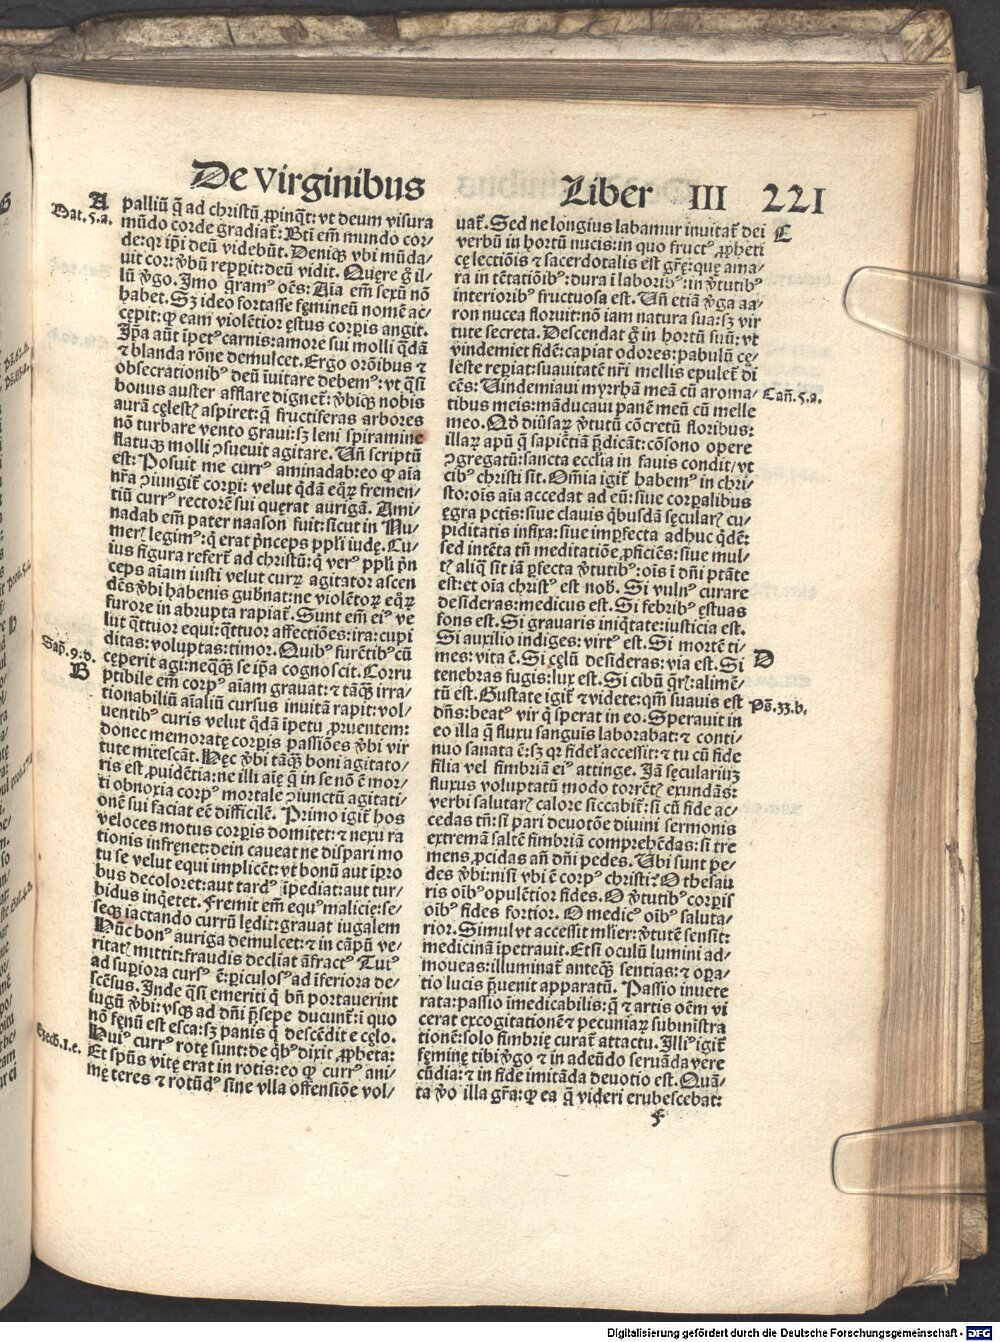 De Virginibus Liber III 221
A
Mat.5.a.
palliū q̄ ad christū ꝓpinq̄t: vt deum visura
mūdo corde gradiat᷑: Bti em̄ mundo cor/
de: qꝛ ip̄i deū videbūt. Deniqꝫ vbi mūda/
uit cor: v̄bū repꝑit: deū vidit. Quęre ḡ il/
lū v̄go. Imo q̄ram⁹ oēs: Aīa em̄ sexū nō
habet. Sꝫ ideo fortasse fęmineū nomē ac/
cępit: qꝙ eam violētior ęstus corpꝑis angit.
Ip̄a aūt īpet⁹ carnis: amore sui molli q̄dā
⁊ blanda rōne demulcet. Ergo orōibus ⁊
obsecrationib⁹ deū īuitare debem⁹: vt q̄si
bonus auster afflare dignet᷑: v̄biqꝫ nobis
aurā cęlestē aspiret: q̄ fructiferas arbores
nō turbare vento graui: sꝫ leni spiramine
flatuqꝫ molli ꝯsueuit agitare. Vn̄ scriptū
est: Posuit me curr⁹ aminadab: eo qꝙ aīa
nr̄a ꝯiungit᷑ corpꝑi: velut q̄dā eq̄ꝝ fremen/
tiū curr⁹ rectorē sui quęrat aurigā. Ami/
nadab em̄ pater naason fuit: sicut in Nu/
merꝭ legim⁹: q̄ erat pn̄ceps ppl̄i iudę. Cu/
ius figura refert᷑ ad christū: q̄ ver⁹ ppl̄i pn̄
ceps aīam iusti velut curꝝ agitator ascen
dēs v̄bi habenis gub̄nat: ne violētoꝝ eq̄ꝝ
furore in abrupta rapiat᷑. Sunt em̄ ei⁹ ve
lut q̄ttuor equi: q̄ttuor affectiōes: ira: cupi
ditas: voluptas: timor. Quib⁹ furētib⁹ cū
Sap̄.9.d.
B
cęperit agi: neq̄q̄ꝫ se ip̄a cognoscit. Corru
ptibile em̄ corp⁹ aīam grauat: ⁊ tāq̄ꝫ irra/
tionabiliū aīaliū cursus inuitā rapit: vol/
uentib⁹ curis velut q̄dā īpetu ꝓruentem:
donec memoratę corpꝑis passiōes v̄bi vir
tute mitescāt. Hęc v̄bi tāq̄ꝫ boni agitato/
ris est ꝓuidētia: ne illi aīę q̄ in se nō ē mor/
ti obnoxia corp⁹ mortale ꝯiunctū agitati/
onē sui faciat eē difficilē. Primo igit᷑ hos
veloces motus corpꝑis domitet: ⁊ nexu ra
tionis infręnet: dein caueat ne dispari mo
tu se velut equi implicēt: vt bonū aut īpro
bus decoloret: aut tard⁹ īpediat: aut tur/
bidus inq̄etet. Fremit em̄ equ⁹ malicię: se/
seqꝫ iactando currū lędit: grauat iugalem
Hūc bon⁹ auriga demulcet: ⁊ in cāpū ve/
ritatꝭ mittit: fraudis decliat āfract⁹ Tui⁹
ad supꝑiora curs⁹ ē: ꝑiculos⁹ ad īferiora de/
scēsus. Inde q̄si emeriti q̄ bn̄ portauerint
iugū v̄bi: vsqꝫ ad dn̄i pr̄sepe ducunt᷑: ī quo
nō fęnū est esca: sꝫ panis q̄ descēdit e cęlo.
Ezech.1.e.
Hui⁹ curr⁹ rotę sunt: de q̄b⁹ dixit ꝓpheta:
Et spūs vitę erat in rotis: eo qꝙ curr⁹ ani/
mę teres ⁊ rotūd⁹ sine vlla offensiōe vol/
uat᷑. Sed ne longius labamur inuitat᷑ dei
C
verbū in hortū nucis: in quo fruct⁹ ꝓpheti
cę lectiōis ⁊ sacerdotalis est gr̄ę: quę ama/
ra in tētatiōib⁹: dura ī laborib⁹: in v̄tutib⁹
interiorib⁹ fructuosa est. Vn̄ etiā v̄ga aa/
ron nucea floruit: nō iam natura sua: sꝫ vir
tute secreta. Descendat ḡ in hortū suū: vt
vindemiet fidē: capiat odores: pabulū cę/
leste repiat: suauitatē nr̄i mellis epulet᷑ di
cēs: Vindemiaui myrrhā meā cū aroma/
Can̄.5.a.
tibus meis: māducaui panē meū cū melle
meo. Qd̄ diūsaꝝ v̄tutū cōcretū floribus:
illaꝝ apū q̄ sapiētiā pr̄dicāt: cōsono opere
ꝯgregatū: sancta eccl̄ia in fauis condit: vt
cib⁹ christi sit. Om̄ia igit᷑ habem⁹ in chri/
sto: oīs aīa accedat ad eū: siue corpꝑalibus
ęgra pctīs: siue clauis q̄busdā sęcularꝭ cu/
piditatis infixa: siue impꝑfecta adhuc q̄dē:
sed intēta tn̄ meditatiōe ꝓficiēs: siue mul/
tꝭ aliq̄ sit iā ꝑfecta v̄tutib⁹: oīs ī dn̄i ptāte
est: et oīa christ⁹ est nob̄. Si vuln⁹ curare
desideras: medicus est. Si febrib⁹ ęstuas
fons est. Si grauaris iniq̄tate: iusticia est.
Si auxilio indiges: virt⁹ est. Si mortē ti/
D
mes: vita ē. Si cęlū desideras: via est. Si
tenebras fugis: lux est. Si cibū q̄rꝭ: alimē/
tū est. Gustate igit᷑ ⁊ videte: qm̄ suauis est
Ps̄.33.b.
dn̄s: beat⁹ vir q̄ sperat in eo. Sperauit in
eo illa q̄ fluxu sanguis laborabat: ⁊ conti/
nuo sanata ē: sꝫ qꝛ fidel̓ accessit: ⁊ tu cū fide
filia vel fimbriā ei⁹ attinge. Iā sęculariuꝫ
fluxus voluptatū modo torrētꝭ exundās:
verbi salutarꝭ calore siccabit᷑: si cū fide ac/
cedas tn̄: si pari deuotōe diuini sermonis
extremā saltē fimbriā comprehēdas: si tre
mens ꝓcidas an̄ dn̄i pedes. Vbi sunt pe/
des v̄bi: nisi vbi ē corp⁹ christi? O thesau
ris oīb⁹ opulētior fides. O v̄tutib⁹ corpꝑis
oīb⁹ fides fortior. O medic⁹ oīb⁹ saluta/
rior. Simul vt accessit ml̓ier: v̄tutē sensit:
medicinā īpetrauit. Etsi oculū lumini ad/
moueas: illuminat᷑ anteq̄ꝫ sentias: ⁊ opꝑa/
tio lucis pr̄uenit apparatū. Passio inuete
rata: passio īmedicabilis: q̄ ⁊ artis oēm vi
cerat excogitationē ⁊ pecuniaꝝ submīstra
tionē: solo fimbrię curat᷑ attactu. Illi⁹ igit᷑
fęminę tibi v̄go ⁊ in adeūdo seruāda vere
cūdia: ⁊ in fide imitāda deuotio est. Quā/
ta v̄o illa gr̄a: qꝙ ea q̄ videri erubescebat:
f
Digitalisierung gefördert durch die Deutsche Forschungsgemeinschaft - DFG